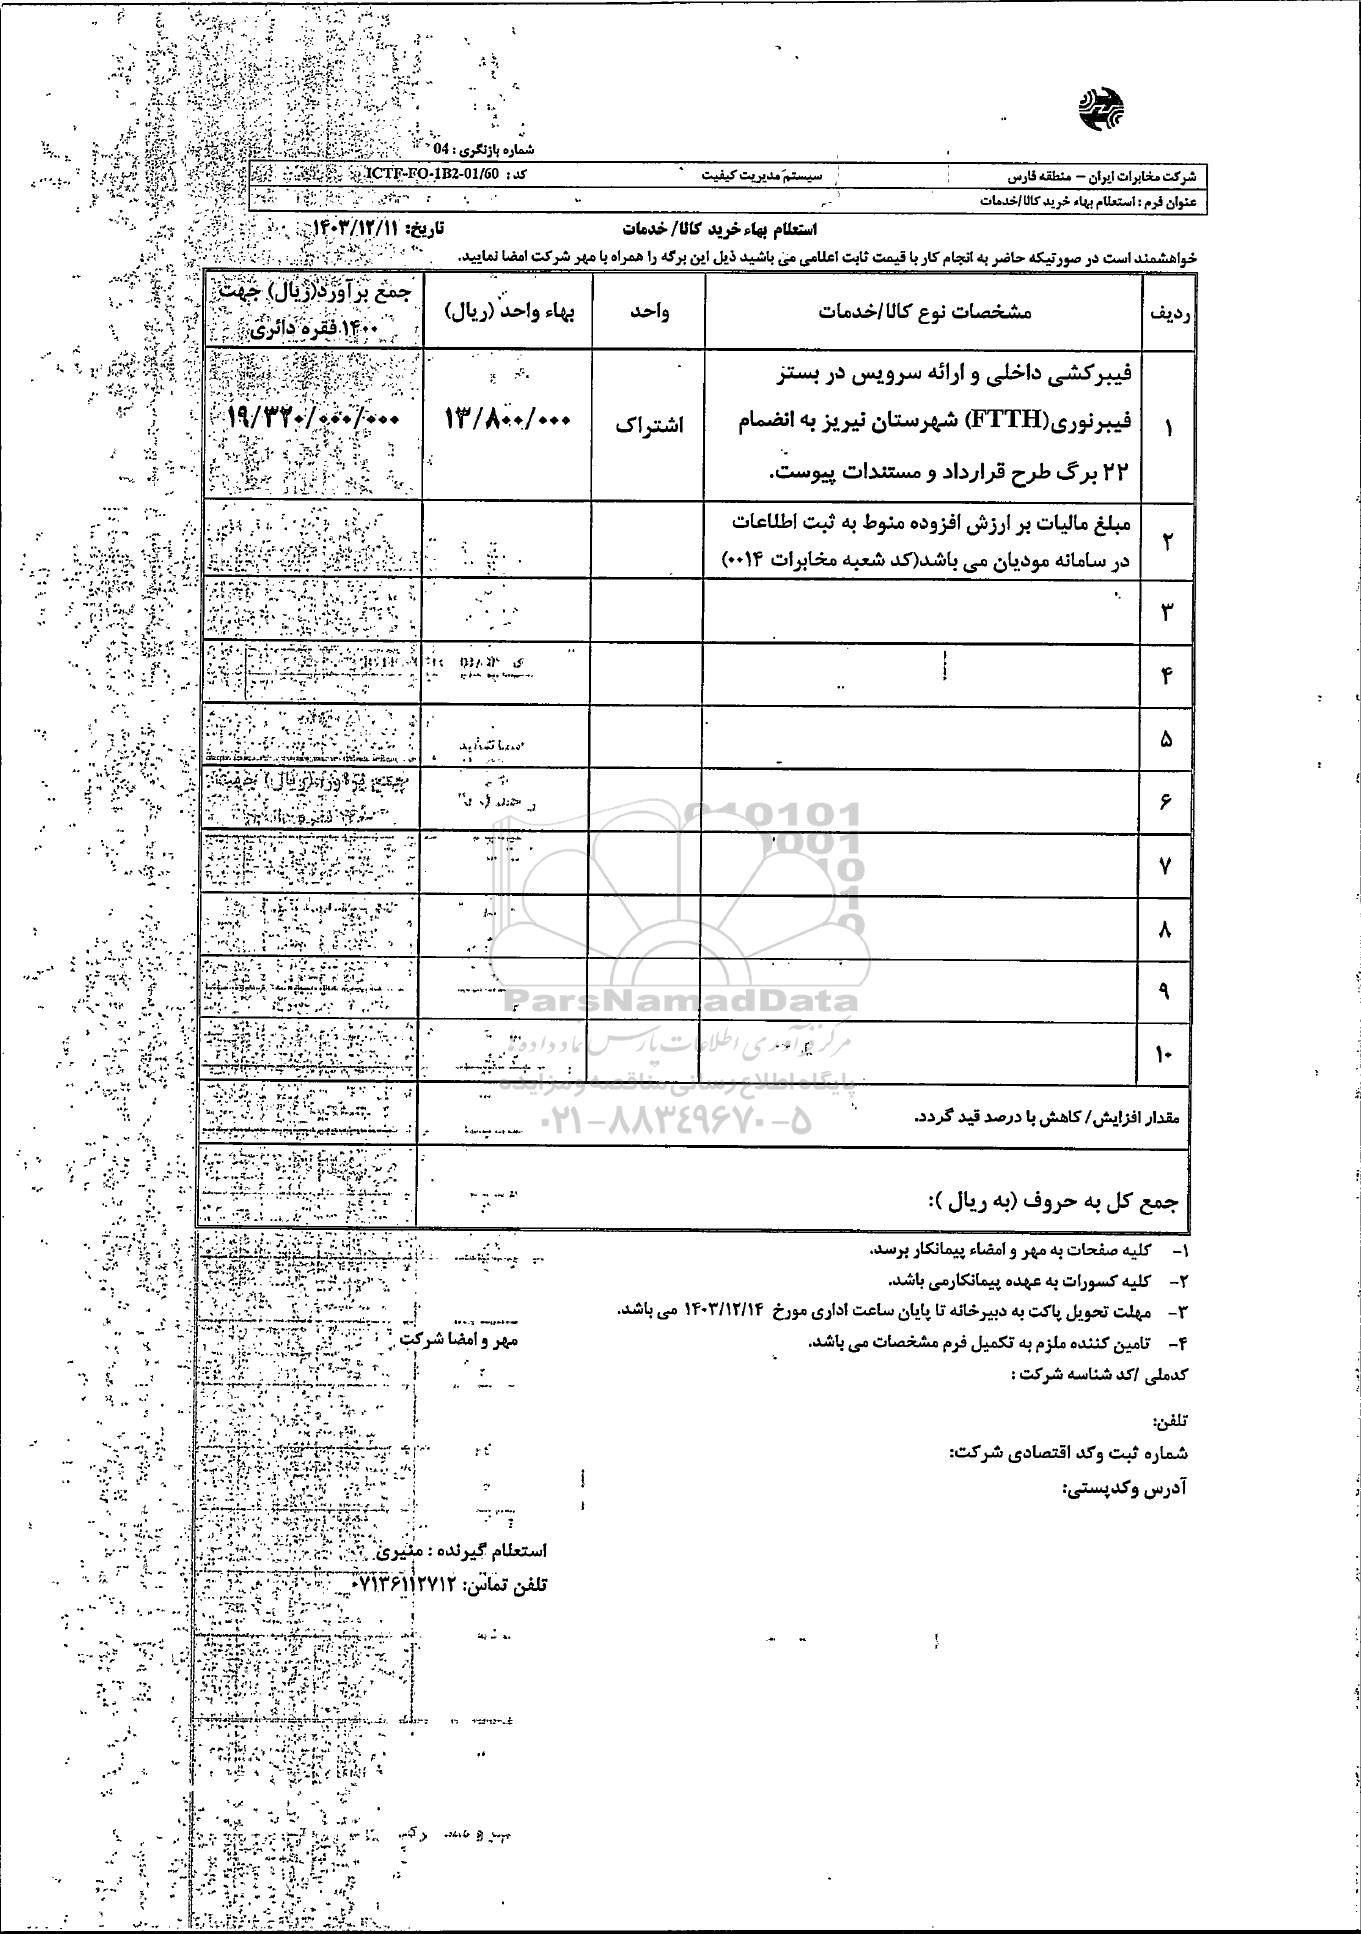 شماره بازنگری : 04
شرکت مخابرات ایران – منطقه فارس
سیستم مدیریت کیفیت
کد : ICTF-FO-1B2-01/60
عنوان فرم : استعلام بهاء خرید کالا/خدمات
استعلام بهاء خرید کالا/ خدمات
تاریخ: ۱۴۰۳/۱۲/۱۱
خواهشمند است در صورتیکه حاضر به انجام کار با قیمت ثابت اعلامی می باشید ذیل این برگه را همراه با مهر شرکت امضا نمایید.
ردیف
مشخصات نوع کالا/خدمات
واحد
بهاء واحد (ریال)
جمع برآورد(ریال) جهت
۱۴۰۰ فقره دائری
۱
فیبرکشی داخلی و ارائه سرویس در بستر
فیبرنوری(FTTH) شهرستان نیریز به انضمام
۲۲ برگ طرح قرارداد و مستندات پیوست.
اشتراک
۱۳/۸۰۰/۰۰۰
۱۹/۳۲۰/۰۰۰/۰۰۰
۲
مبلغ مالیات بر ارزش افزوده منوط به ثبت اطلاعات
در سامانه مودیان می باشد(کد شعبه مخابرات ۰۰۱۴)
۳
۴
۵
۶
۷
۸
۹
۱۰
010101
001
10
1
0
ParsNamadData
مرکز فرآوری اطلاعات پارس نماد داده ها
پایگاه اطلاع رسانی مناقصه و مزایده
۰۲۱-۸۸۳۴۹۶۷۰-۵
مقدار افزایش/ کاهش با درصد قید گردد.
جمع کل به حروف (به ریال ):
۱- کلیه صفحات به مهر و امضاء پیمانکار برسد.
۲- کلیه کسورات به عهده پیمانکارمی باشد.
۳- مهلت تحویل پاکت به دبیرخانه تا پایان ساعت اداری مورخ ۱۴۰۳/۱۲/۱۴ می باشد.
۴- تامین کننده ملزم به تکمیل فرم مشخصات می باشد.
مهر و امضا شرکت
کدملی /کد شناسه شرکت :
تلفن:
شماره ثبت وکد اقتصادی شرکت:
آدرس وکدپستی:
استعلام گیرنده : منیری
تلفن تماس: ۰۷۱۳۶۱۱۲۷۱۲